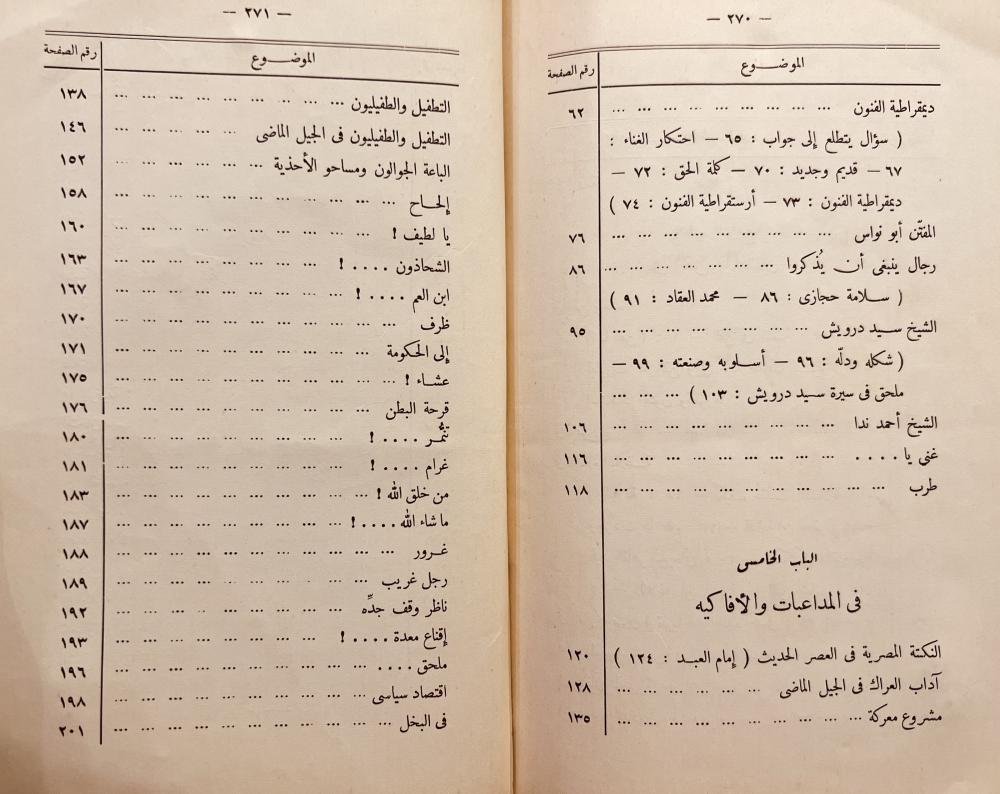 — ٢٧٠ —
الموضوع رقم الصفحة
ديمقراطية الفنون ... ... ... ... ... ... ... ... ٦٢
( سؤال يتطلع إلى جواب : ٦٥ — احتكار الغناء :
٦٧ — قديم وجديد : ٧٠ — كلمة الحق : ٧٢ —
ديمقراطية الفنون : ٧٣ — أرستقراطية الفنون : ٧٤ )
المفتّن أبو نواس ... ... ... ... ... ... ... ... ٧٦
رجال ينبغى أن يُذكروا ... ... ... ... ... ... ... ٨٦
( سلامة حجازى : ٨٦ — محمد العقاد : ٩١ )
الشيخ سيد درويش ... ... ... ... ... ... ... ... ٩٥
( شكله ودلّه : ٩٦ — أسلوبه وصنعته : ٩٩ —
ملحق فى سيرة سيد درويش : ١٠٣ ) ... ... ...
الشيخ أحمد ندا ... ... ... ... ... ... ... ... ١٠٦
غنى يا .... ... ... ... ... ... ... ... ... ١١٦
طرب ... ... ... ... ... ... ... ... ... ... ١١٨
الباب الخامس
فى المداعبات والأفاكيه
النكتة المصرية فى العصر الحديث ( إمام العبد : ١٢٤ ) ١٢٠
آداب العراك فى الجيل الماضى ... ... ... ... ... ... ١٢٨
مشروع معركة ... ... ... ... ... ... ... ... ... ١٣٥
— ٢٧١ —
الموضوع رقم الصفحة
التطفيل والطفيليون ... ... ... ... ... ... ... ... ... ١٣٨
التطفيل والطفيليون فى الجيل الماضى ... ... ... ... ... ١٤٦
الباعة الجوالون ومساحو الأحذية ... ... ... ... ... ... ١٥٢
إلحاح ... ... ... ... ... ... ... ... ... ... ... ١٥٨
يا لطيف ! ... ... ... ... ... ... ... ... ... ... ١٦٠
الشحاذون .... ! ... ... ... ... ... ... ... ... ... ١٦٣
ابن العم .... ! ... ... ... ... ... ... ... ... ... ١٦٧
ظرف ... ... ... ... ... ... ... ... ... ... ... ١٧٠
إلى الحكومة ... ... ... ... ... ... ... ... ... ... ١٧١
عشاء ! ... ... ... ... ... ... ... ... ... ... ... ١٧٥
قرحة البطن ... ... ... ... ... ... ... ... ... ... ١٧٦
تنمُّر .... ! ... ... ... ... ... ... ... ... ... ... ١٨٠
غرام .... ! ... ... ... ... ... ... ... ... ... ١٨١
من خلق الله ! ... ... ... ... ... ... ... ... ... ... ١٨٣
ما شاء الله .... ! ... ... ... ... ... ... ... ... ... ١٨٧
غرور ... ... ... ... ... ... ... ... ... ... ... ١٨٨
رجل غريب ... ... ... ... ... ... ... ... ... ... ١٨٩
ناظر وقف جدِّه ... ... ... ... ... ... ... ... ... ... ١٩٢
إقناع معدة .... ! ... ... ... ... ... ... ... ... ١٩٣
ملحق .... ... ... ... ... ... ... ... ... ... ... ١٩٦
اقتصاد سياسى ... ... ... ... ... ... ... ... ... ... ١٩٨
فى البخل ... ... ... ... ... ... ... ... ... ... ... ٢٠١